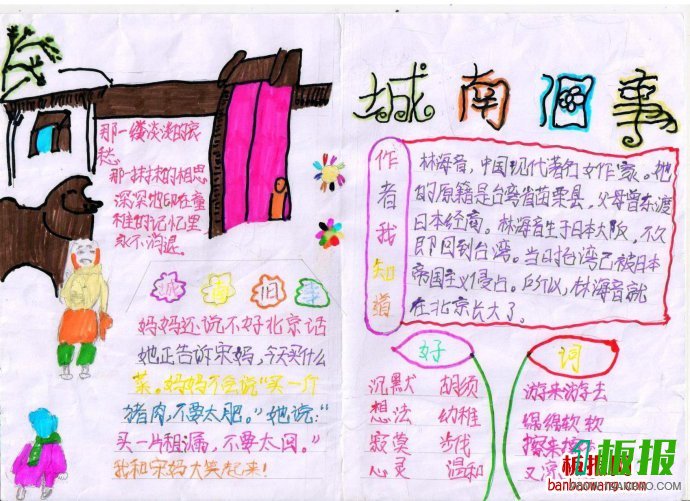 城南旧事
那一缕淡淡的哀
愁
那一抹抹的相思
深深地印在童
稚的记忆里
永不消退。
城南旧事
妈妈还说不好北京话
她正告诉宋妈,今天买什么
菜。妈妈不会说“买一斤
猪肉,不要太肥。”她说:“
买一片租漏,不要太回。”
我和宋妈大笑起来!
作者我知道
林海音,中国现代著名女作家。她
的原籍是台湾省苗栗县,父母曾东渡
日本经商。林海音生于日本大阪,不久
即回到台湾。当时台湾已被日本
帝国主义侵占。所以,林海音就
在北京长大了。
好词
沉默 胡须
想法 幼稚
寂寞 步伐
心灵 温和
游来游去
绵绵软软
擦来
又凉
板报
banbaowang.com